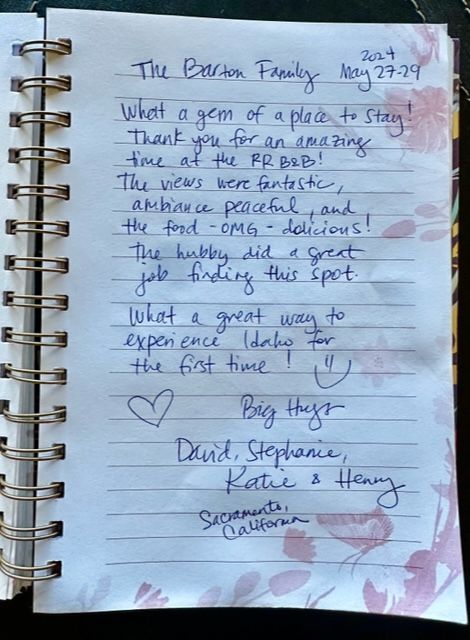 The Barton Family
2024
May 27-29
What a gem of a place to stay!
Thank you for an amazing
time at the RR B&B!
The views were fantastic,
ambiance peaceful, and
the food - OMG - delicious!
The hubby did a great
job finding this spot.
What a great way to
experience Idaho for
the first time!
Big Hugs
David, Stephanie,
Katie & Henry
Sacramento,
California